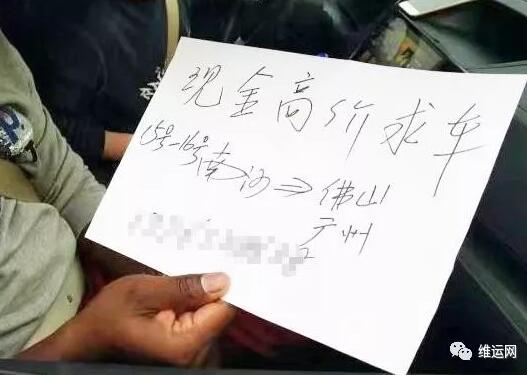 现金高价求车
15号-16号南沙⇒佛山
广州
维运网